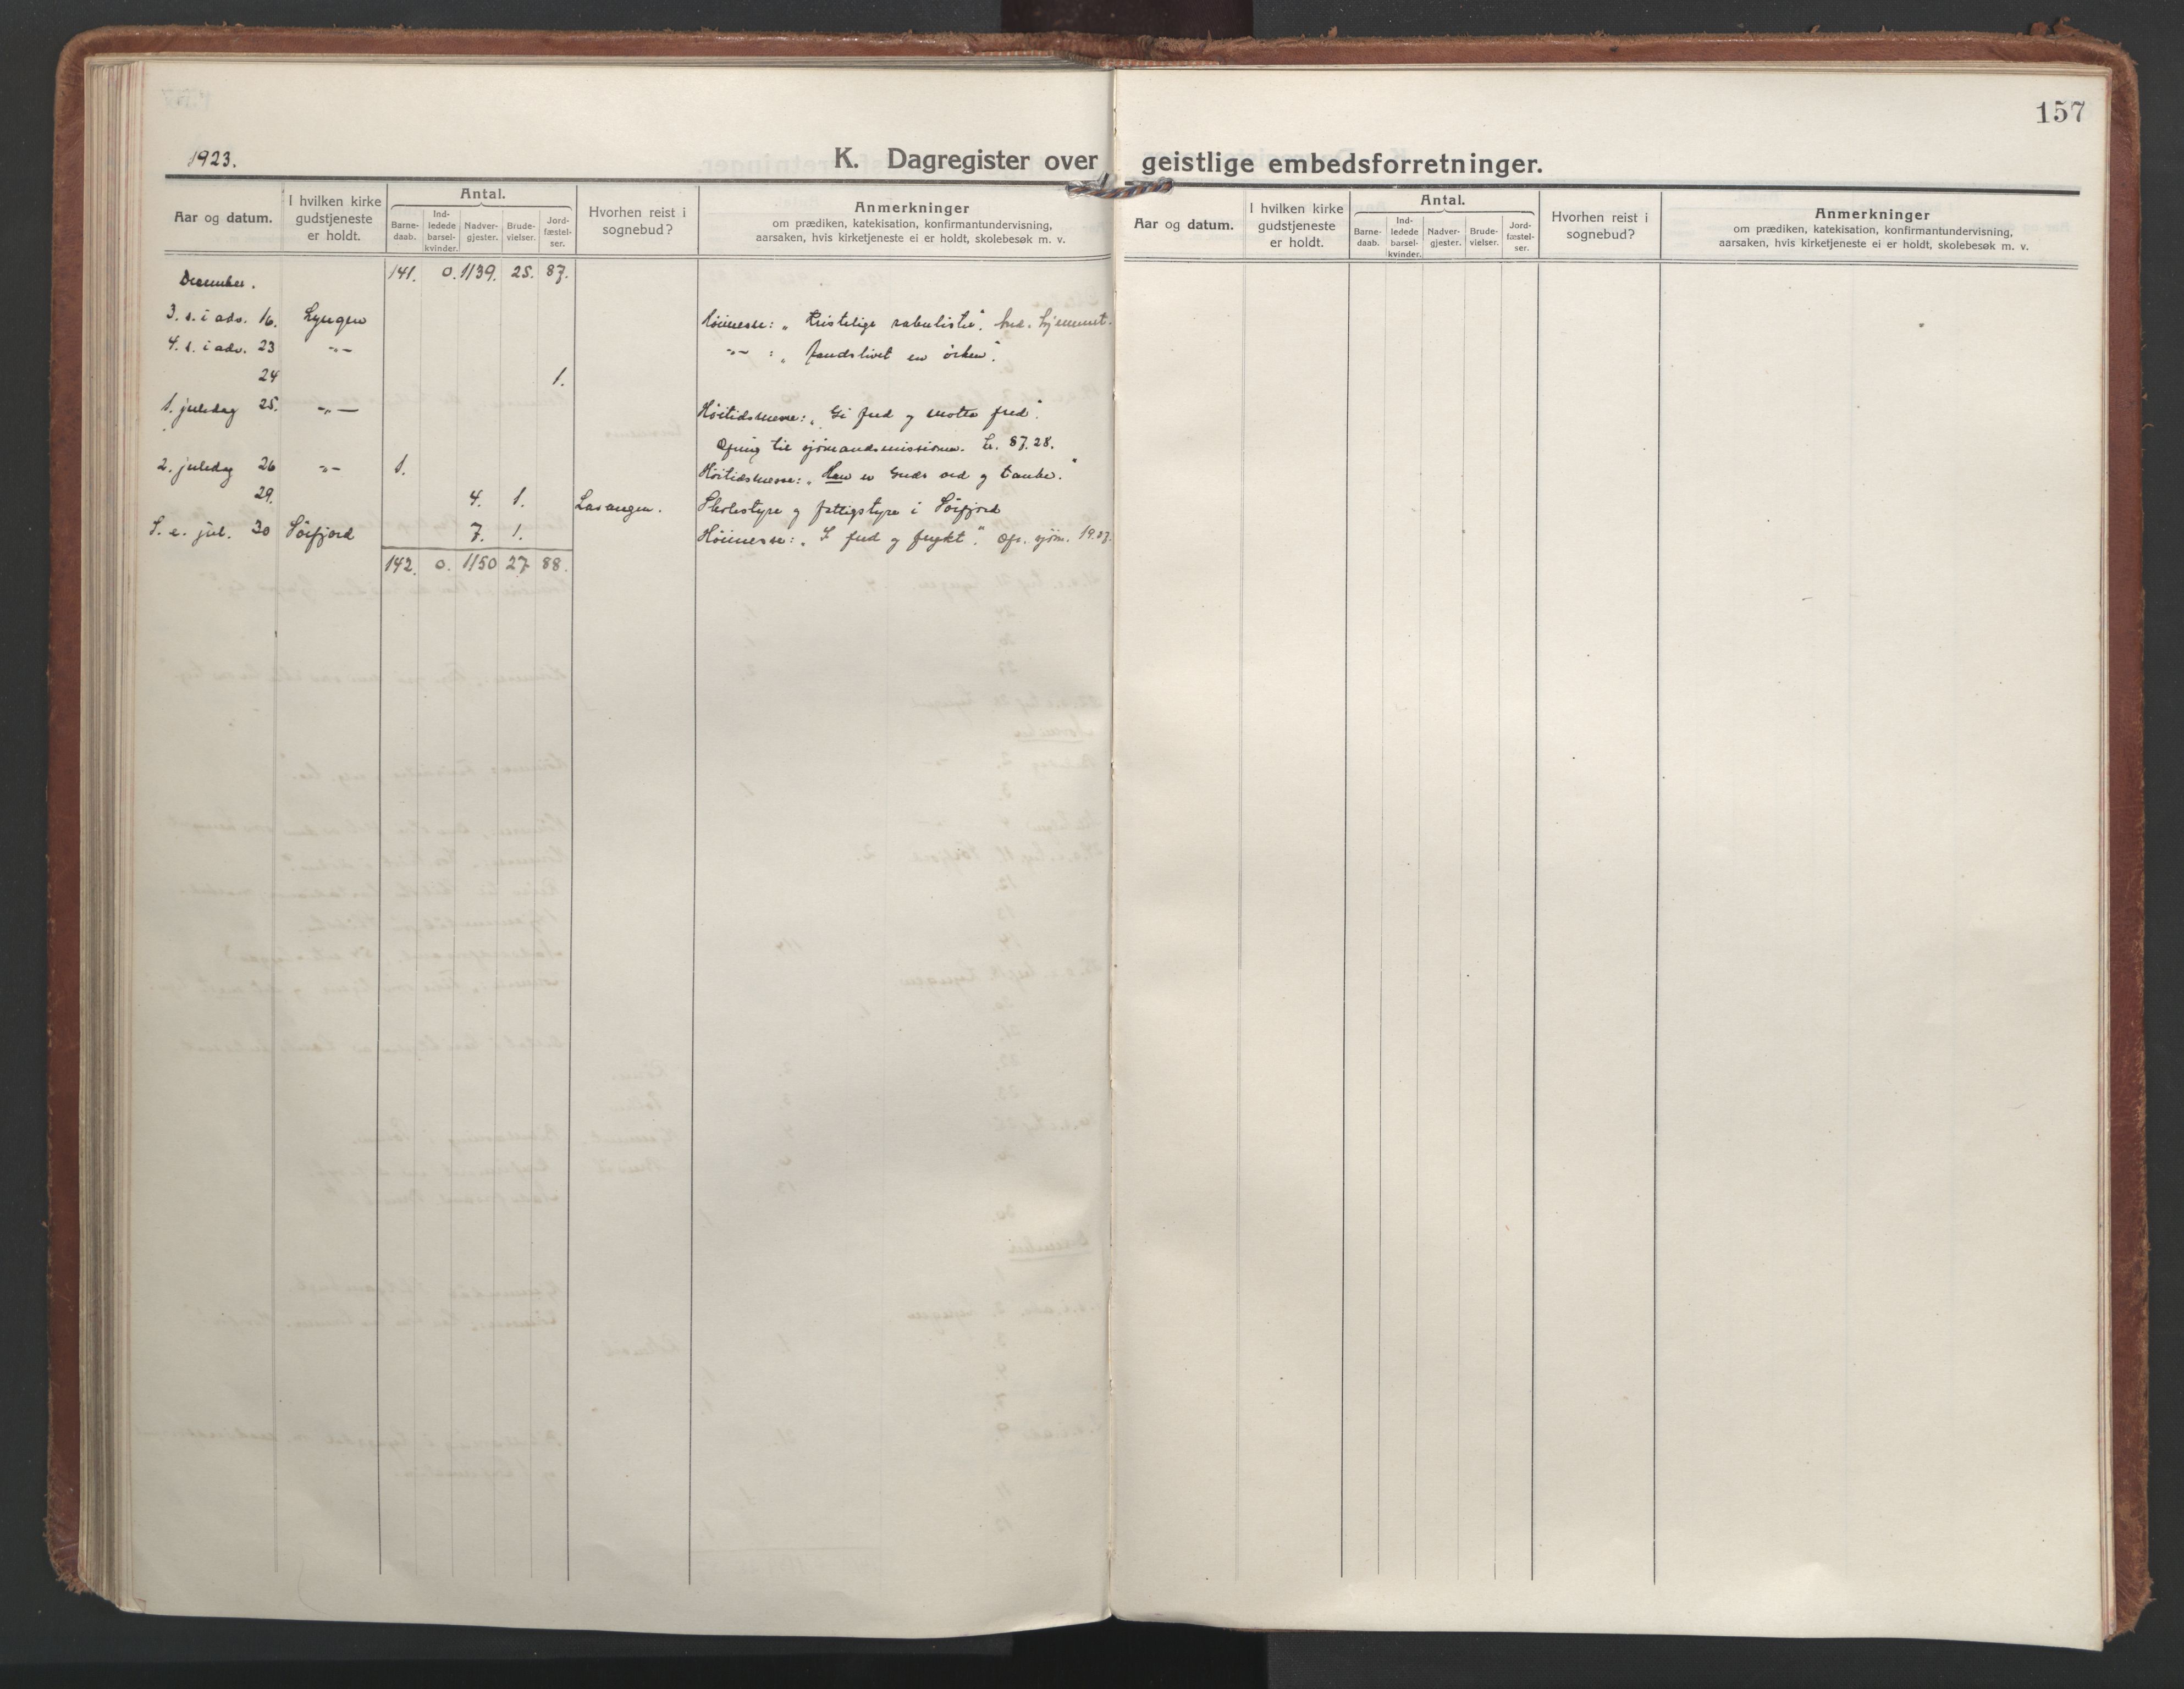 157
1923.
K. Dagregister over geistlige embedsforretninger.
Aar og datum.
I hvilken kirke
gudstjeneste
er holdt.
Antal.
Barne-
daab.
Ind-
ledede
barsel-
kvinder.
Nadver-
gjester.
Brude-
vielser.
Jord-
fæstel-
ser.
Hvorhen reist i
sognebud?
Anmerkninger
om prædiken, katekisation, konfirmantundervisning,
aarsaken, hvis kirketjeneste ei er holdt, skolebesøk m. v.
December. 141. 0. 1139. 25. 87.
3. s. i adv. 16. Lyngen Höimesse: „Kristelige
4. s. i adv. 23 -"- -"- : „ en örken".
24 1.
1. juledag 25. -"- Höitidsmesse: „Gi fred og motta fred".
Ofring til sjömandsmissionen. kr. 87.28.
2. juledag 26 -"- 1. Höitidsmesse: „Han er Guds ord og tanke."
29. 4. 1. Lavangen. Skolestyre og fattigstyre i Sörfjord
S. e. jul. 30 Sörfjord 7. 1. Höimesse: „I fred og frykt". Of. sjöm. 19.07.
142. 0. 1150 27. 88.
Aar og datum.
I hvilken kirke
gudstjeneste
er holdt.
Antal.
Barne-
daab.
Ind-
ledede
barsel-
kvinder.
Nadver-
gjester.
Brude-
vielser.
Jord-
fæstel-
ser.
Hvorhen reist i
sognebud?
Anmerkninger
om prædiken, katekisation, konfirmantundervisning,
aarsaken, hvis kirketjeneste ei er holdt, skolebesøk m. v.